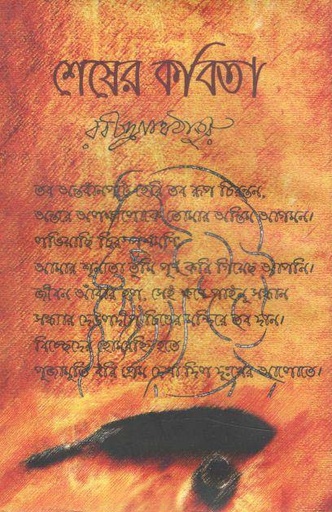 শেষের কবিতা
রবীন্দ্রনাথ ঠাকুর
তব অন্তর্ধানপটে হেরি তব রূপ চিরন্তন,
অন্তরে অলক্ষ্যলোকে তোমার অন্তিম আগমন।
লভিয়াছি চিরস্পর্শমণি;
আমার শূন্যতা তুমি পূর্ণ করি গিয়েছ আপনি।
জীবন আঁধার হল, সেই ক্ষণে পাইনু সন্ধান
সন্ধ্যার দেউলদীপ চিত্তের মন্দিরে তব দান।
বিচ্ছেদের হোমবহ্নি হতে
পূজামূর্তি ধরি প্রেম দেখা দিল দুঃখের আলোতে।